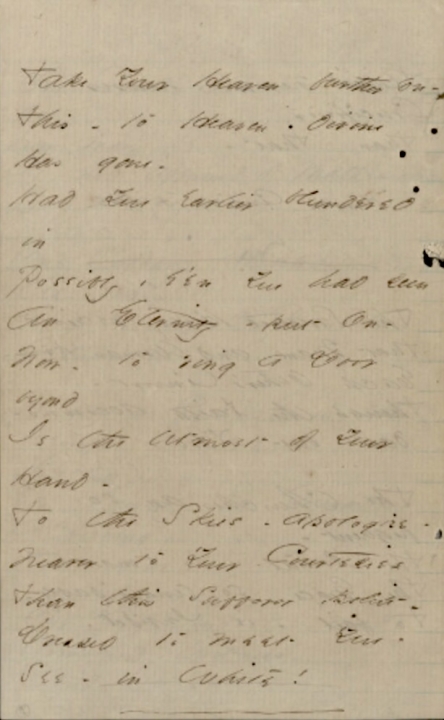 Take Your Heaven further on -
This - to Heaven - Divine
Has gone -
Had You earlier blundered
in
Possibly, e'en You had seen
An Eternity - put on -
Now - to ring a Door
beyond
Is the utmost of Your
Hand -
To the Skies - apologize -
Nearer to Your Courtesies
Than this Sufferer polite -
Dressed to meet You -
See - in White!